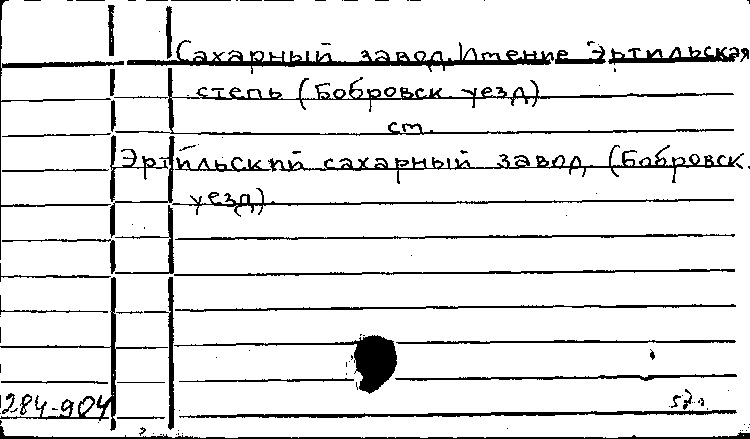 Сахарный завод. Имение Эртильская
степь (Бобровск. уезд)
ст.
Эртильский сахарный завод, (Бобровск.
уезд).
284-904